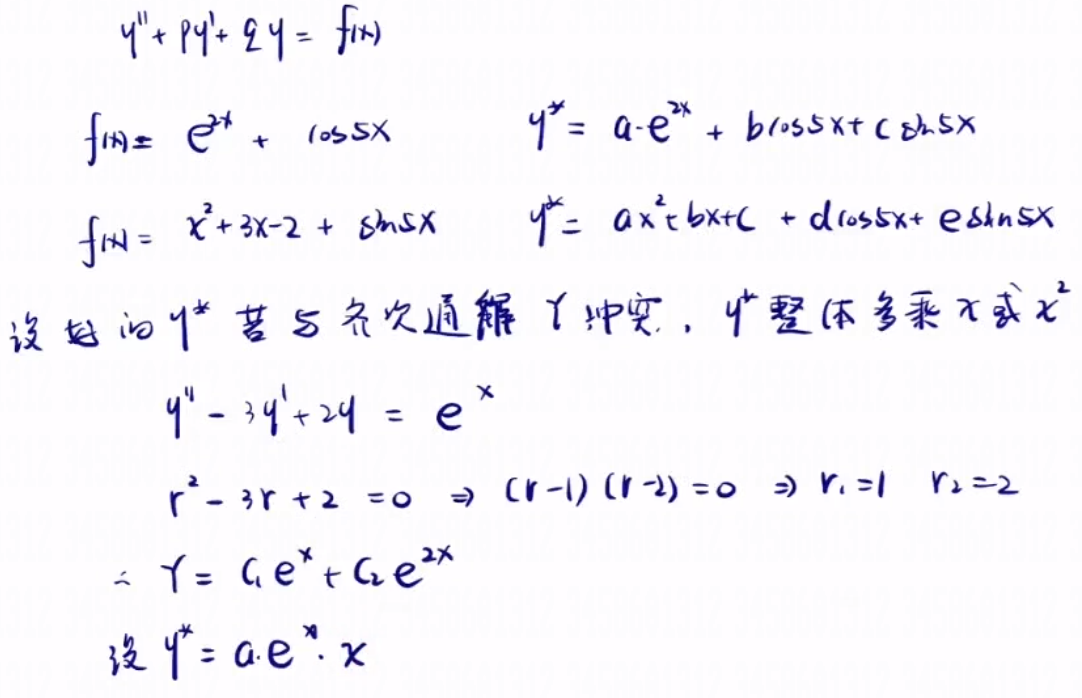 y''+py'+qy=f(x)
f(x)= e^{2x} + cos5x y*= a·e^{2x} + bcos5x+c sin5x
f(x)= x²+3x-2 + sin5x y*= ax²+bx+c + dcos5x+ esin5x
设起的y*若与齐次通解Y冲突，y*整体多乘x或x²
y''-3y'+2y = e^x
r²-3r+2=0 ⇒ (r-1)(r-2)=0 ⇒ r₁=1 r₂=2
∴ Y= C₁e^x+C₂e^{2x}
设y*=a·e^x·x